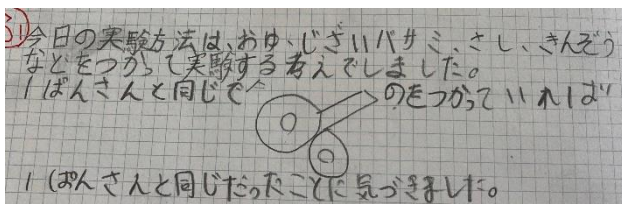 今日の実験方法は、おゆ、じざいバサミ、さし、きんぞう
などをつかって実験する考えでしました。
1ばんさんと同じで のをつかっていれば
1ばんさんと同じだったことに気づきました。